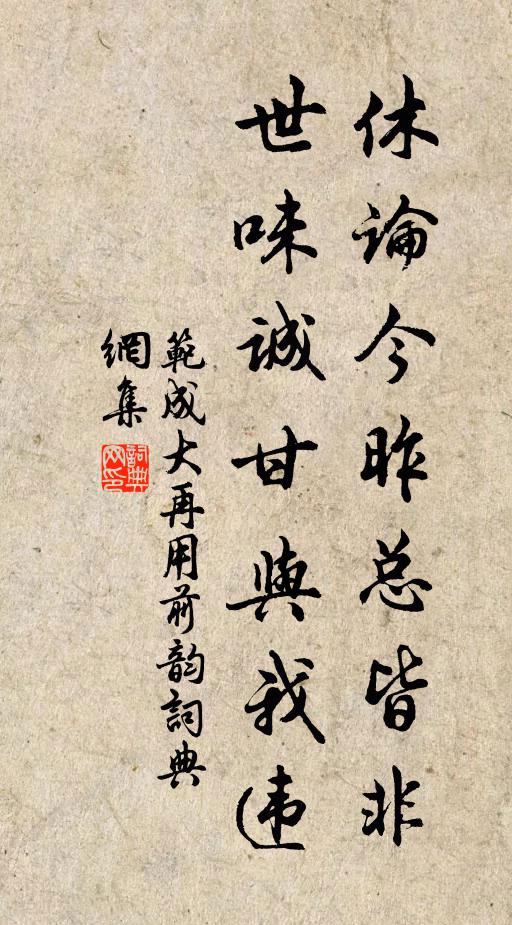 休論今昨总皆非
世味誠甘與我违
範成大再用前韵詞典
網集
詞典
网印